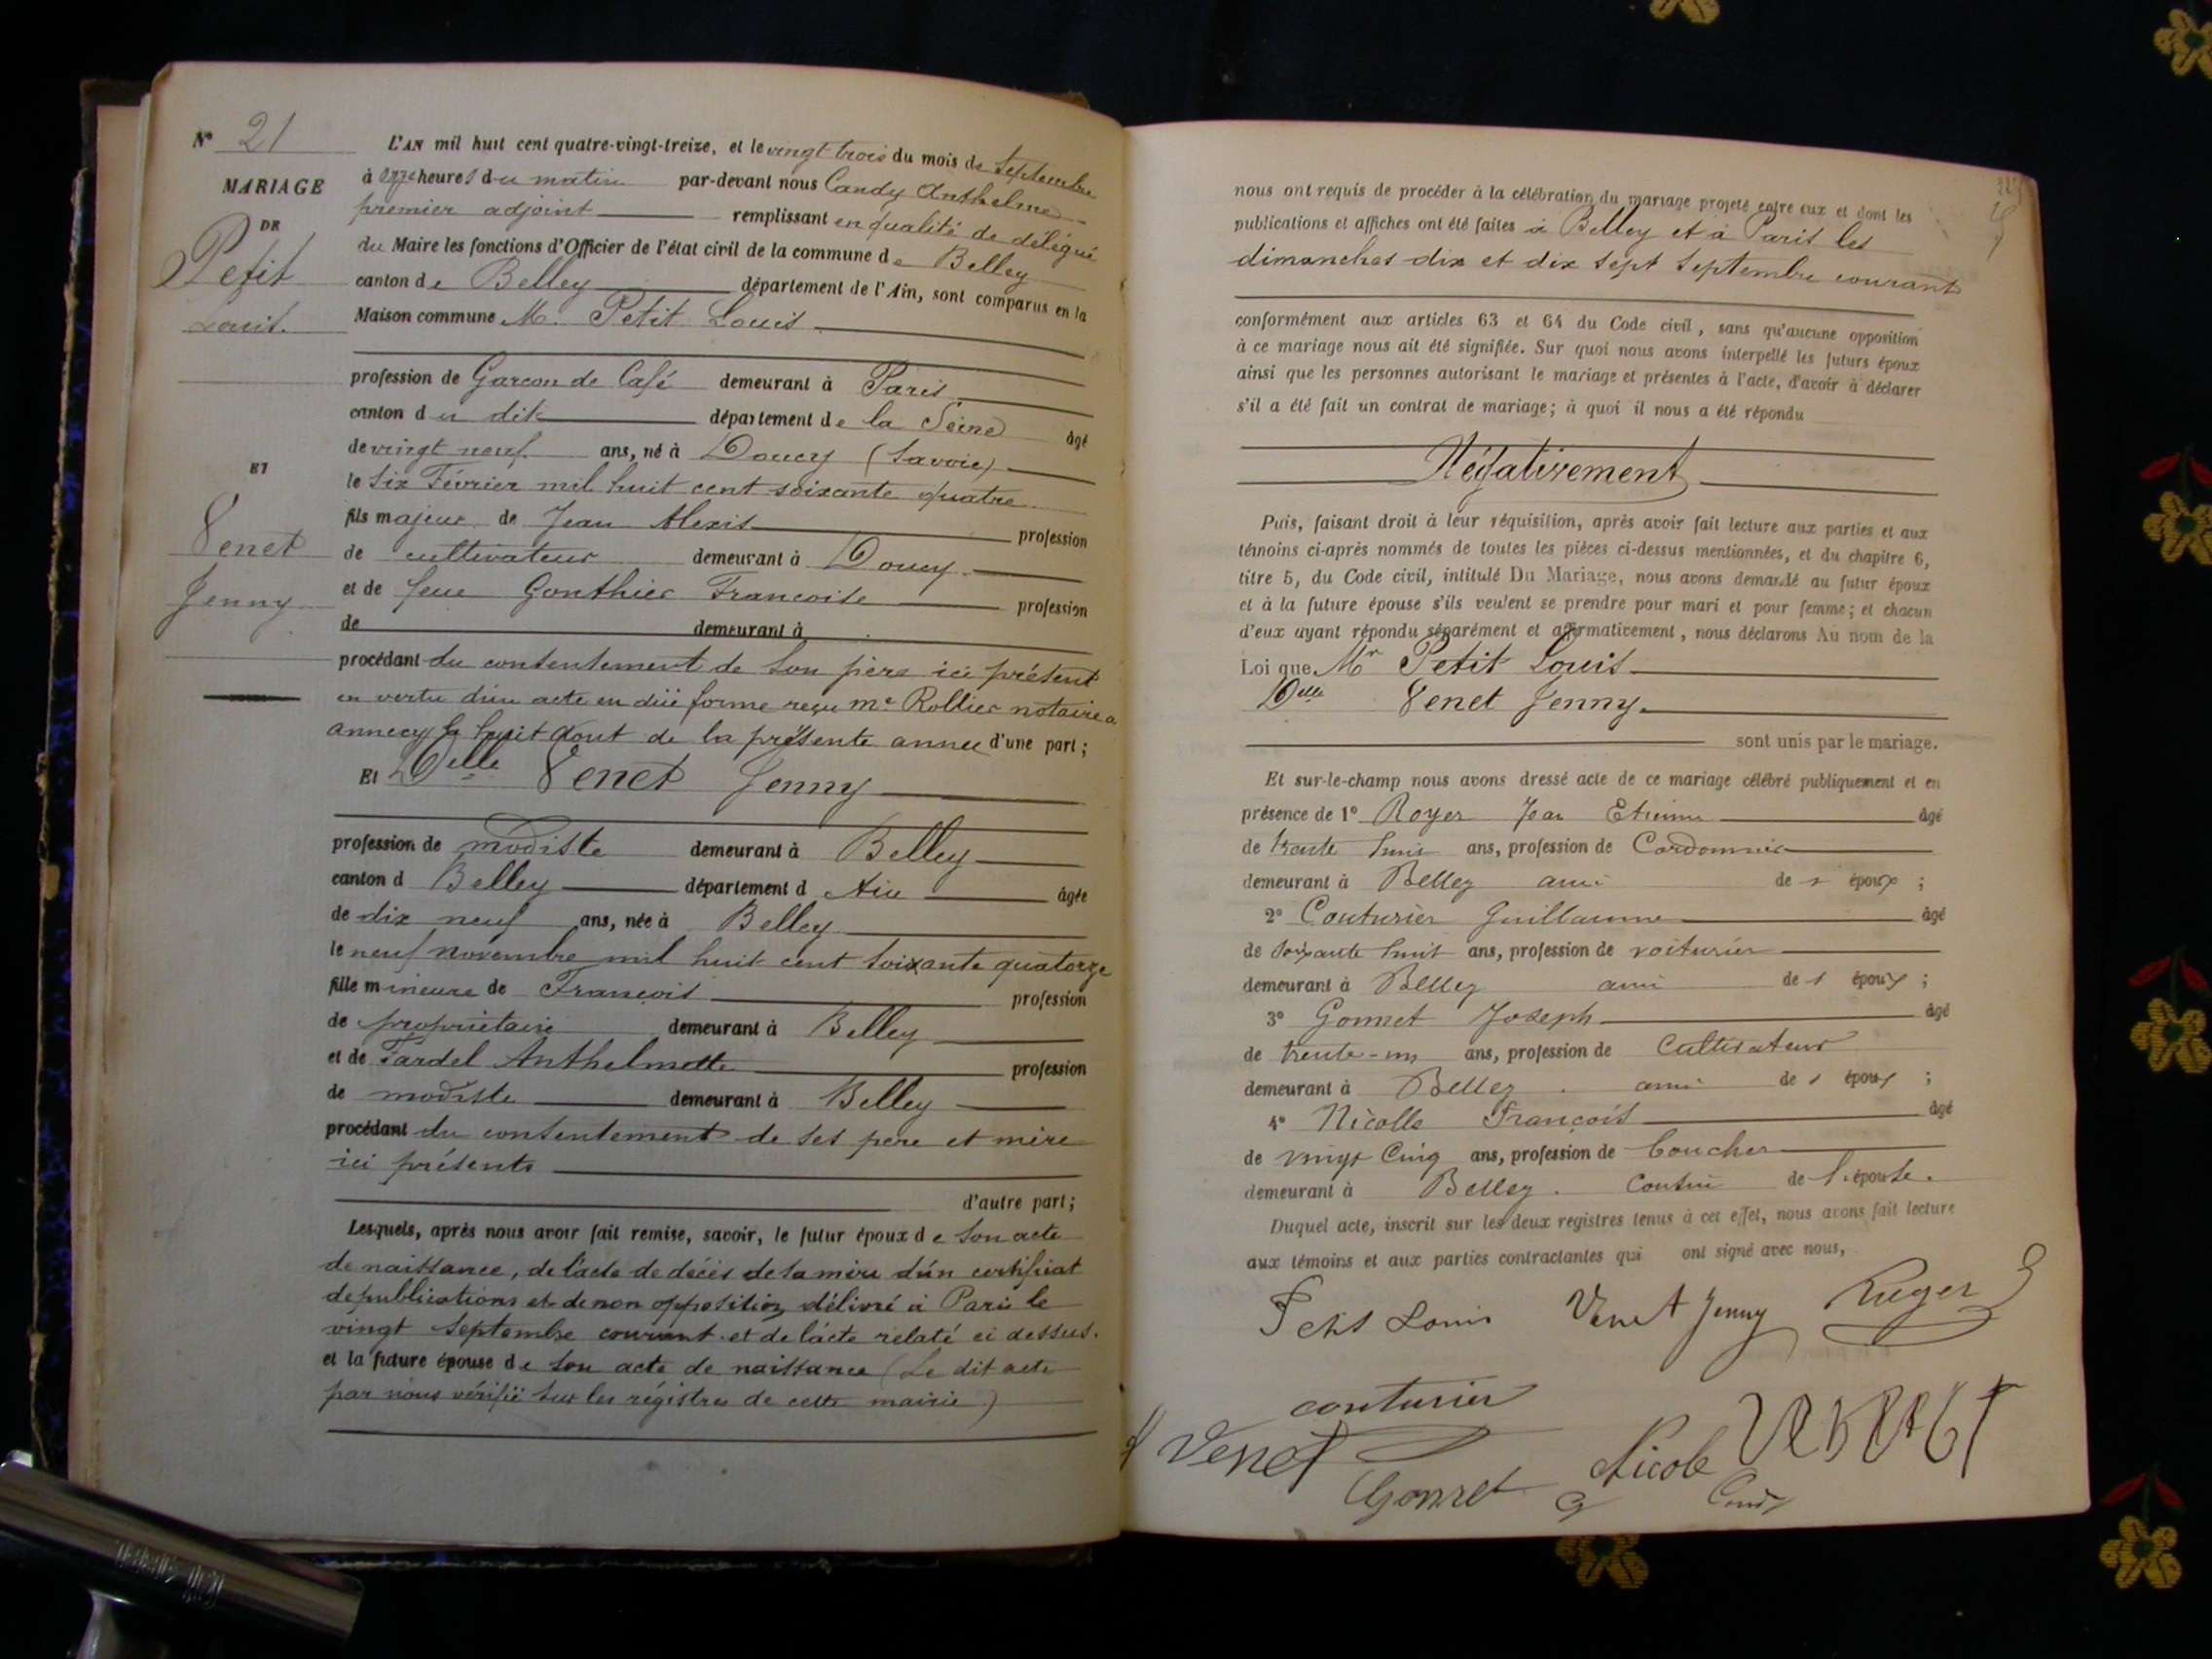 N° 21
MARIAGE
DE
Petit
Louis.
ET
Venet
Jenny
L'AN mil huit cent quatre-vingt-treize, et le vingt trois du mois de Septembre
à onze heures du matin par-devant nous Candy Anthelme
premier adjoint remplissant en qualité de délégué
du Maire les fonctions d'Officier de l'état civil de la commune de Belley
canton de Belley département de l'Ain, sont comparus en la
Maison commune M. Petit Louis
profession de Garçon de Café demeurant à Paris
canton du dit département de la Seine âgé
de vingt neuf ans, né à Doucy (Savoie)
le Six Février mil huit cent soixante quatre
fils majeur de Jean Alexis profession
de cultivateur demeurant à Doucy
et de feue Gonthier Francoise profession
de demeurant à
procédant du consentement de son père ici présent
en vertu d'un acte en dûe forme reçu me Rollier notaire a
annecy le huit Aout de la présente année d'une part;
Et Delle Venet Jenny
profession de modiste demeurant à Belley
canton d Belley département d Ain âgée
de dix neuf ans, née à Belley
le neuf novembre mil huit cent soixante quatorze
fille mineure de François profession
de propriétaire demeurant à Belley
et de Tardel Anthelmette profession
de modiste demeurant à Belley
procédant du consentement de ses père et mère
ici présents
d'autre part;
Lesquels, après nous avoir fait remise, savoir, le futur époux de son acte
de naissance, de l'acte de décès de sa mère d'un certificat
de publications et de non opposition délivré à Paris le
vingt Septembre courant et de l'acte relaté ci dessus.
et la future épouse de son acte de naissance (Le dit acte
par nous vérifié sur les régistres de cette mairie)
nous ont requis de procéder à la célébration du mariage projeté entre eux et dont les
publications et affiches ont été faites à Belley et à Paris les
dimanches dix et dix sept Septembre courant
conformément aux articles 63 et 64 du Code civil, sans qu'aucune opposition
à ce mariage nous ait été signifiée. Sur quoi nous avons interpellé les futurs époux
ainsi que les personnes autorisant le mariage et présentes à l'acte, d'avoir à déclarer
s'il a été fait un contrat de mariage; à quoi il nous a été répondu
Négativement
Puis, faisant droit à leur réquisition, après avoir fait lecture aux parties et aux
témoins ci-après nommés de toutes les pièces ci-dessus mentionnées, et du chapitre 6,
titre 5, du Code civil, intitulé Du Mariage, nous avons demandé au futur époux
et à la future épouse s'ils veulent se prendre pour mari et pour femme; et chacun
d'eux ayant répondu séparément et affirmativement, nous déclarons Au nom de la
Loi que Mr Petit Louis
Delle Venet Jenny
sont unis par le mariage.
Et sur-le-champ nous avons dressé acte de ce mariage célébré publiquement et en
présence de 1° Royer Jean Etienne âgé
de trente huit ans, profession de Cordonnier
demeurant à Belley ami de époux ;
2° Couturier Guillaume âgé
de soixante huit ans, profession de voiturier
demeurant à Belley ami de époux ;
3° Gonnet Joseph âgé
de trente-un ans, profession de Cultivateur
demeurant à Belley ami de époux ;
4° Nicolle François âgé
de vingt Cinq ans, profession de boucher
demeurant à Belley. Cousin de l'épouse.
Duquel acte, inscrit sur les deux registres tenus à cet effet, nous avons fait lecture
aux témoins et aux parties contractantes qui ont signé avec nous,
Petit Louis Venet Jenny
couturier
Venet
Gonnet Nicole Candy